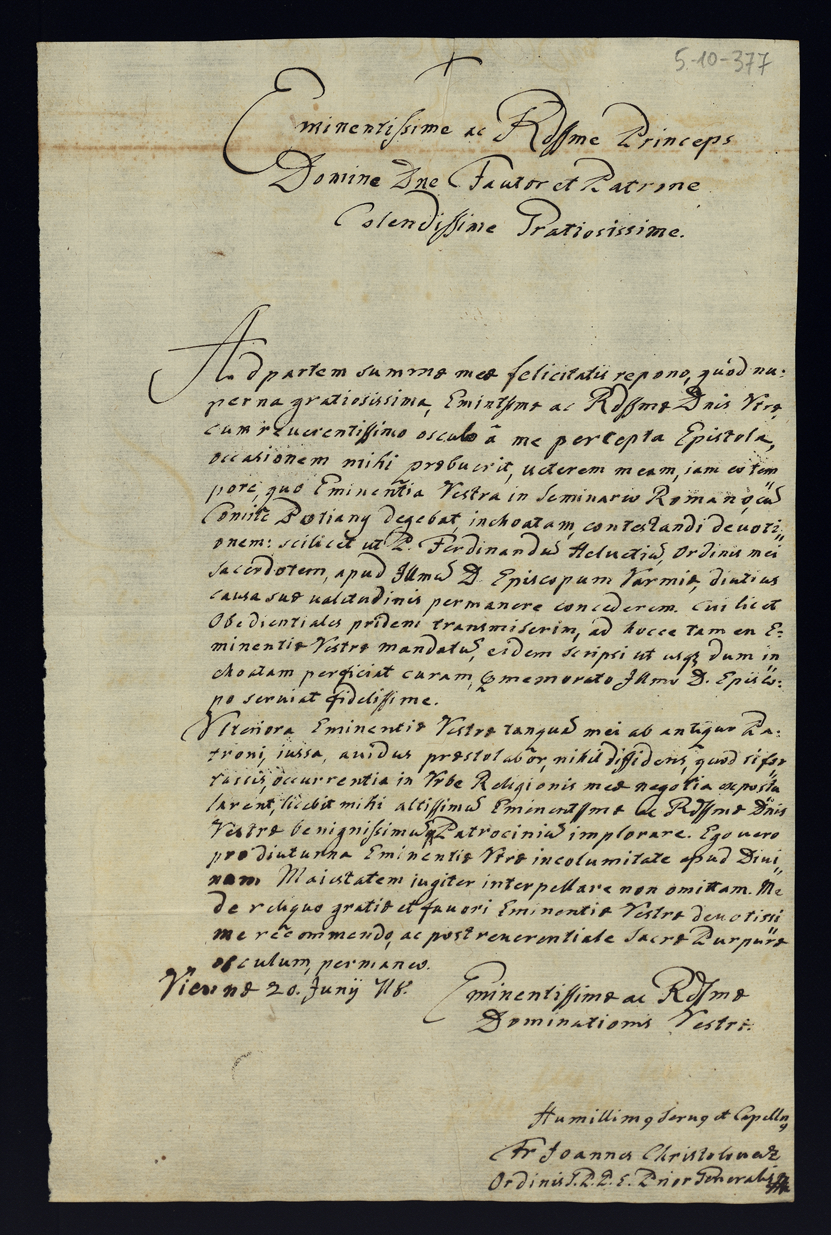 5-10-377
Eminentissime ac Rdssme Princeps
Domine Dne Fautor et Patrone
Colendissime Gratiosissime.
Ad partem summæ meæ felicitatis repono, quòd nu:
per na gratiosissima, Emintssmæ ac Rdssmæ Dnis Vræ,
cum reuerentissimo osculo â me percepta Epistola,
occasionem mihi præbuerit, ueterem meam, iam eo tem
pore, quo Eminentia Vestra in Seminario Romano, cũ
Comite degebat, inchoatam, contestandi deuoti:
onem: scilicet ut P. Ferdinandũ Heluetiũ, Ordinis mei
sacerdotem, apud Illmũ D. Episcopum Varmiæ, diutius
causa suæ ualetudinis permanere concederem. Cui licet
Obedientiales pridem transmiserim, ad hocce tamen E:
minentiæ Vestræ mandatũ, eidem scripsi ut usq dum in
choatam perficiat curam, memorato Illmo D. Episco:
po seruiat fidelissime.
Vlteriora Eminentiæ Vestræ tanquã mei ab antiquo Pa:
troni, iussa, auidus præstolabor, nihil diffidens, quòd si for
tassis, occurrentia in Vrbe Religionis meæ negotia expostu
larent, licebit mihi altissimũ Eminentssmæ ac Rdssmæ Dnis
Vestræ benignissimũq Patrociniũ implorare. Ego uero
pro diuturna Eminentiæ Vræ incolumitate apud Diui
nam Maiestatem iugiter interpellare non omittam. Me
de reliquo gratiæ et fauori Eminentiæ Vestræ deuotissi
me recommendo, ac post reuerentiale Sacræ Purpuræ
osculum, permaneo.
Viennæ 20. Junij 718.
Eminentissimæ ac Rdssmæ
Dominationis Vestræ.
Humillimq Seruq et Capellnq
Fr Joannes
Ordinis S. P. P. E. Prior Generalis